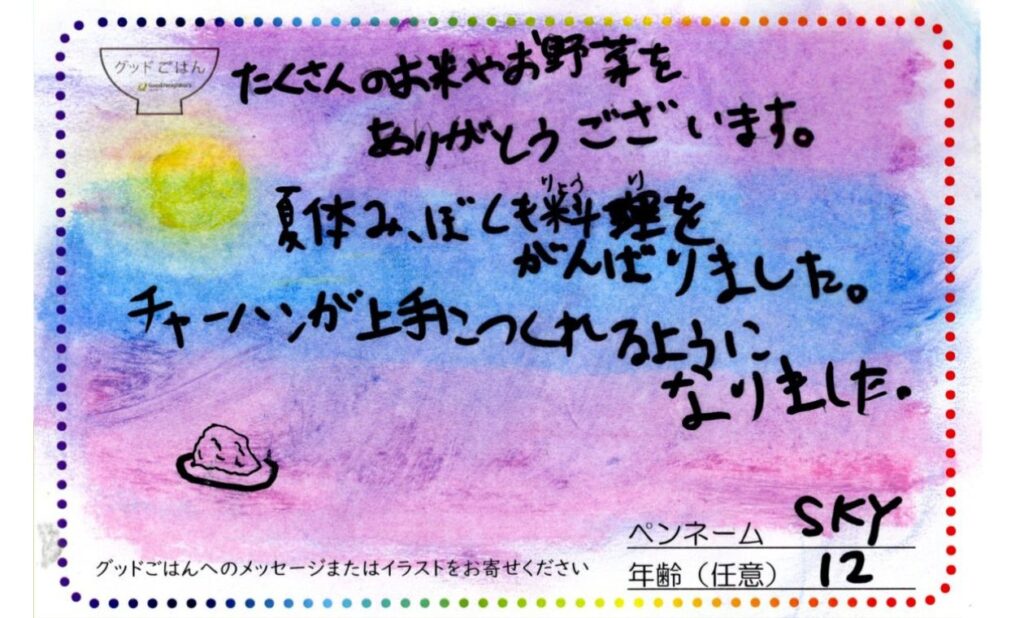 グッドごはん
Good Neighbors
たくさんのお米やお野菜を
ありがとうございます。
夏休み、ぼくも料理を
りょう り
がんばりました。
チャーハンが上手につくれるように
なりました。
ペンネーム SKY
年齢（任意） 12
グッドごはんへのメッセージまたはイラストをお寄せください